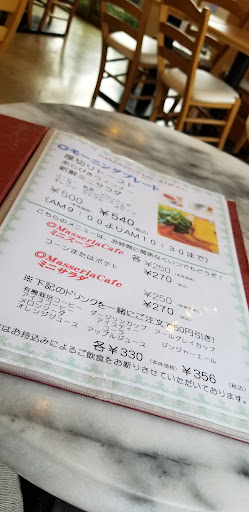 ◎モーニングプレート
厚切りトースト
あらびきフランスト
新鮮ミニサラダ
¥500 ¥540
(AM9:00よりAM10:30まで)
こちらのメニューは、お時間に関係なくいつでもどうぞ!
◎MasseriaCafe
ミニ
各¥250
¥270
コーンまたはポテト
◎MasseriaCafe
ミニサラダ
¥250
¥270
※下記のドリンクを一緒にご注文で50円引き!
有機栽培コーヒー ダージリンカップ アールグレイカップ
メロンソーダ アイスティー ジンジャーエール
オレンジジュース アップルジュース
各¥330 (本体価格) ¥356 (税込)
はお持込みによるご飲食をお断りさせていただいております。